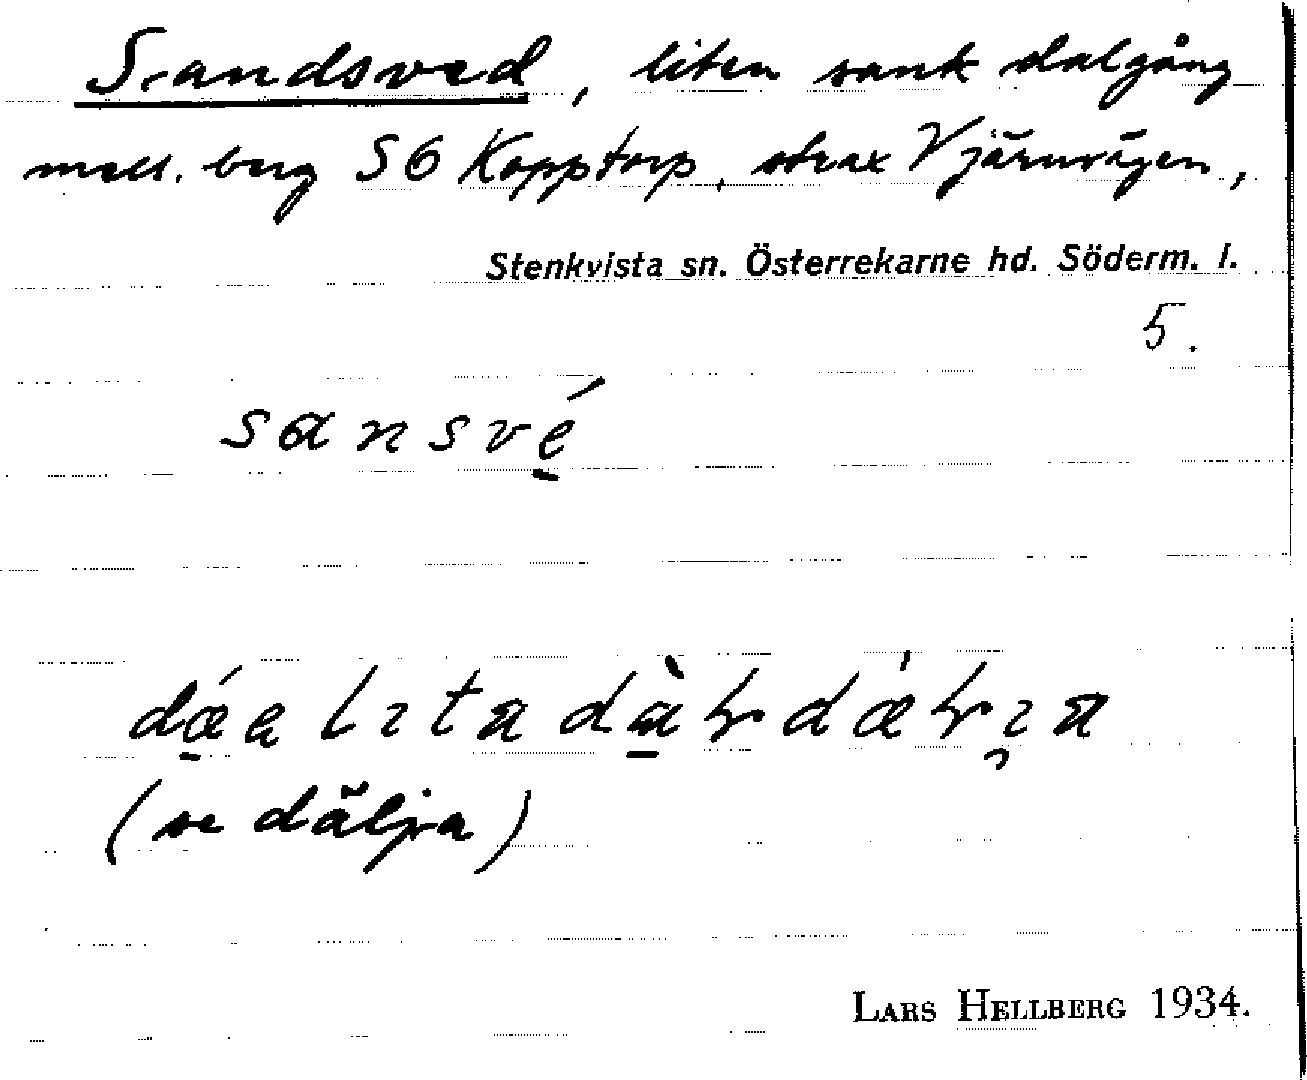 Sandsved, liten sank dalgång
mell. berg SÖ Kopptorp, strax V järnvägen,
Stenkvista sn. Österrekarne hd. Söderm. l.
5.
sansvé
(se dälja)
LARS HELLBERG 1934.